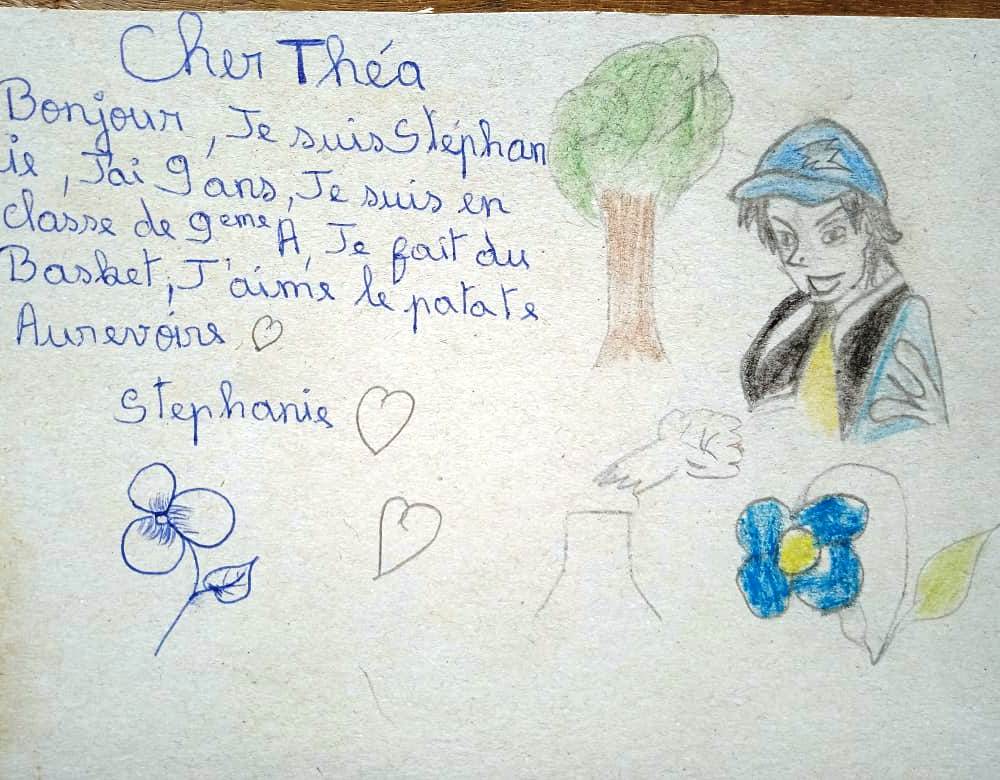 Cher Théa
Bonjour, Je suis Stéphan
ie, J'ai 9 ans, Je suis en
classe de 9eme A, Je fait du
Basket, J'aime le patate
Aurevoire
Stephanie